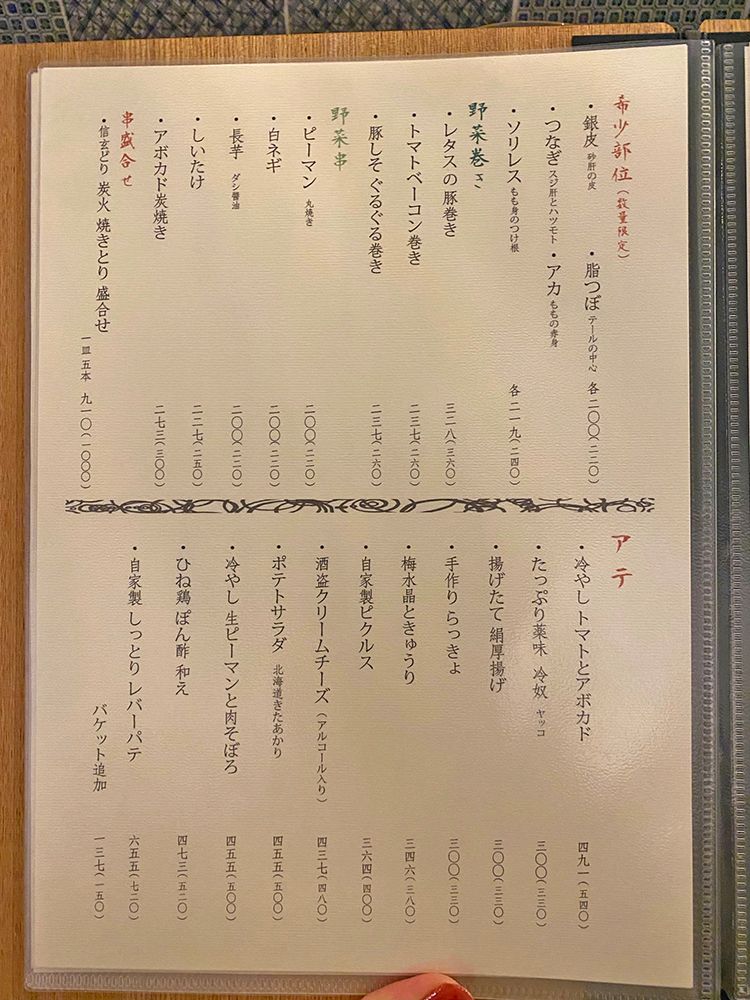 希少部位(数量限定)
・銀皮 砂肝の皮 ・脂つぼ テールの中心 各二〇〇(二二〇)
・つなぎ スジ肝とハツモト ・アカ ももの赤身
・ソリレス もも身のつけ根 各二一九(二四〇)
野菜巻き
・レタスの豚巻き 三二八(三六〇)
・トマトベーコン巻き 二三七(二六〇)
・豚しそぐるぐる巻き 二三七(二六〇)
野菜串
・ピーマン 丸焼き 二〇〇(二二〇)
・白ネギ 二〇〇(二二〇)
・長芋 ダシ醤油 二〇〇(二二〇)
・しいたけ 二二七(二五〇)
・アボカド炭焼き 二七三(三〇〇)
串盛合せ
・信玄どり 炭火 焼きとり 盛合せ
一皿 五本 九一〇(一〇〇〇)
アテ
・冷やしトマトとアボカド 四九一(五四〇)
・たっぷり薬味 冷奴 ヤッコ 三〇〇(三三〇)
・揚げたて 絹厚揚げ 三〇〇(三三〇)
・手作り らっきょ 三〇〇(三三〇)
・梅水晶ときゅうり 三四六(三八〇)
・自家製ピクルス 三六四(四〇〇)
・酒盗クリームチーズ(アルコール入り) 四三七(四八〇)
・ポテトサラダ 北海道きたあかり 四五五(五〇〇)
・冷やし 生ピーマンと肉そぼろ 四五五(五〇〇)
・ひね鶏 ぽん酢 和え 四七三(五二〇)
・自家製 しっとりレバーパテ 六五五(七二〇)
バケット追加 一三七(一五〇)